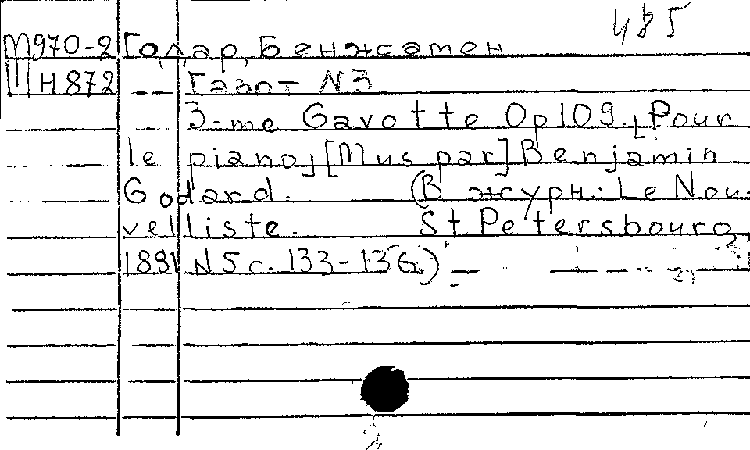 485
М970-2 Годар, Бенжамен
Ш Н872 -- Гавот N3
3-me Gavotte Op109. [Pour
le piano] [Mus par] Benjamin
Godard. (В журн: Le Nou-
velliste. St Petersbourg
1891 N5 с. 133-136)